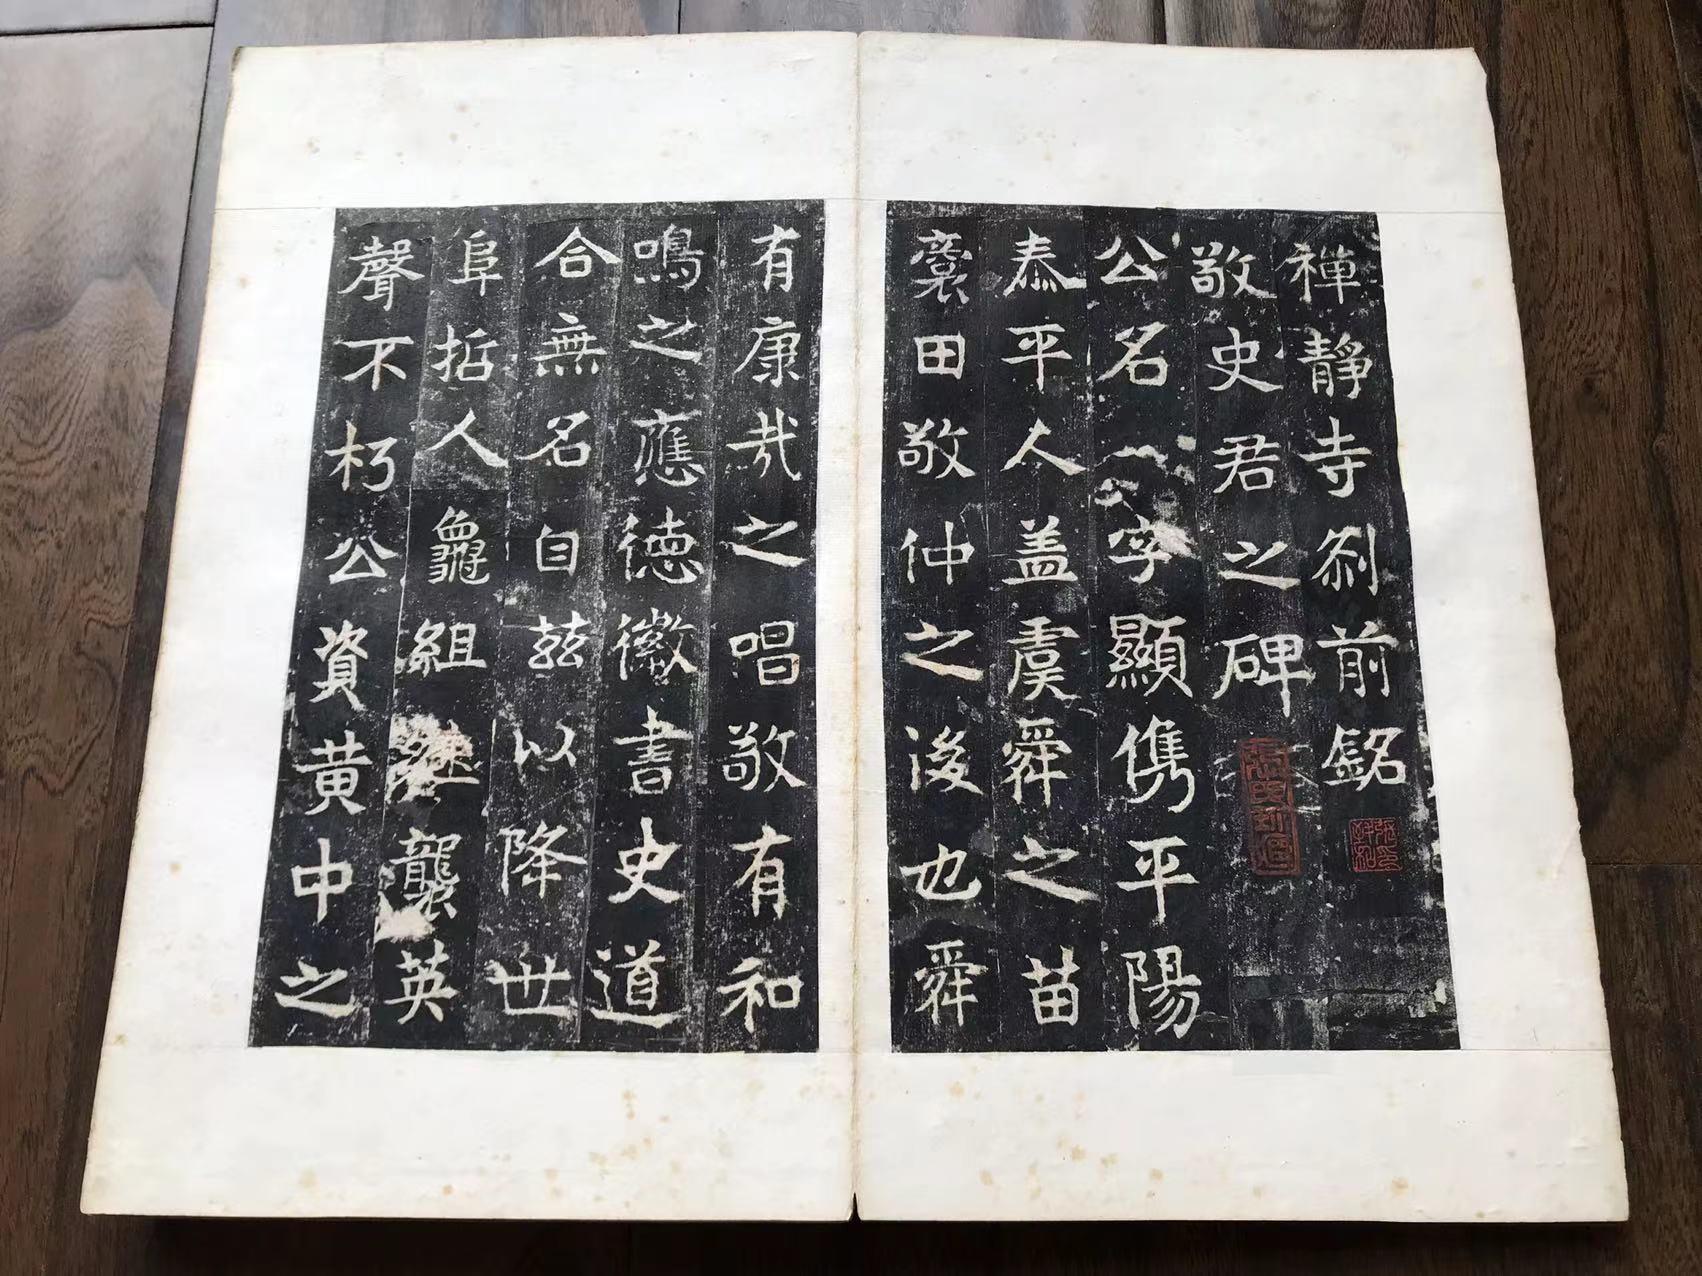 禪靜寺刹前銘
敬史君之碑
公名字顯儁平陽
泰平人盖虞舜之苗
裔田敬仲之後也舜
有康哉之唱敬有和
鳴之應徳徽書史道
合無名自兹以降世
阜哲人龜組襲英
聲不朽公資黄中之